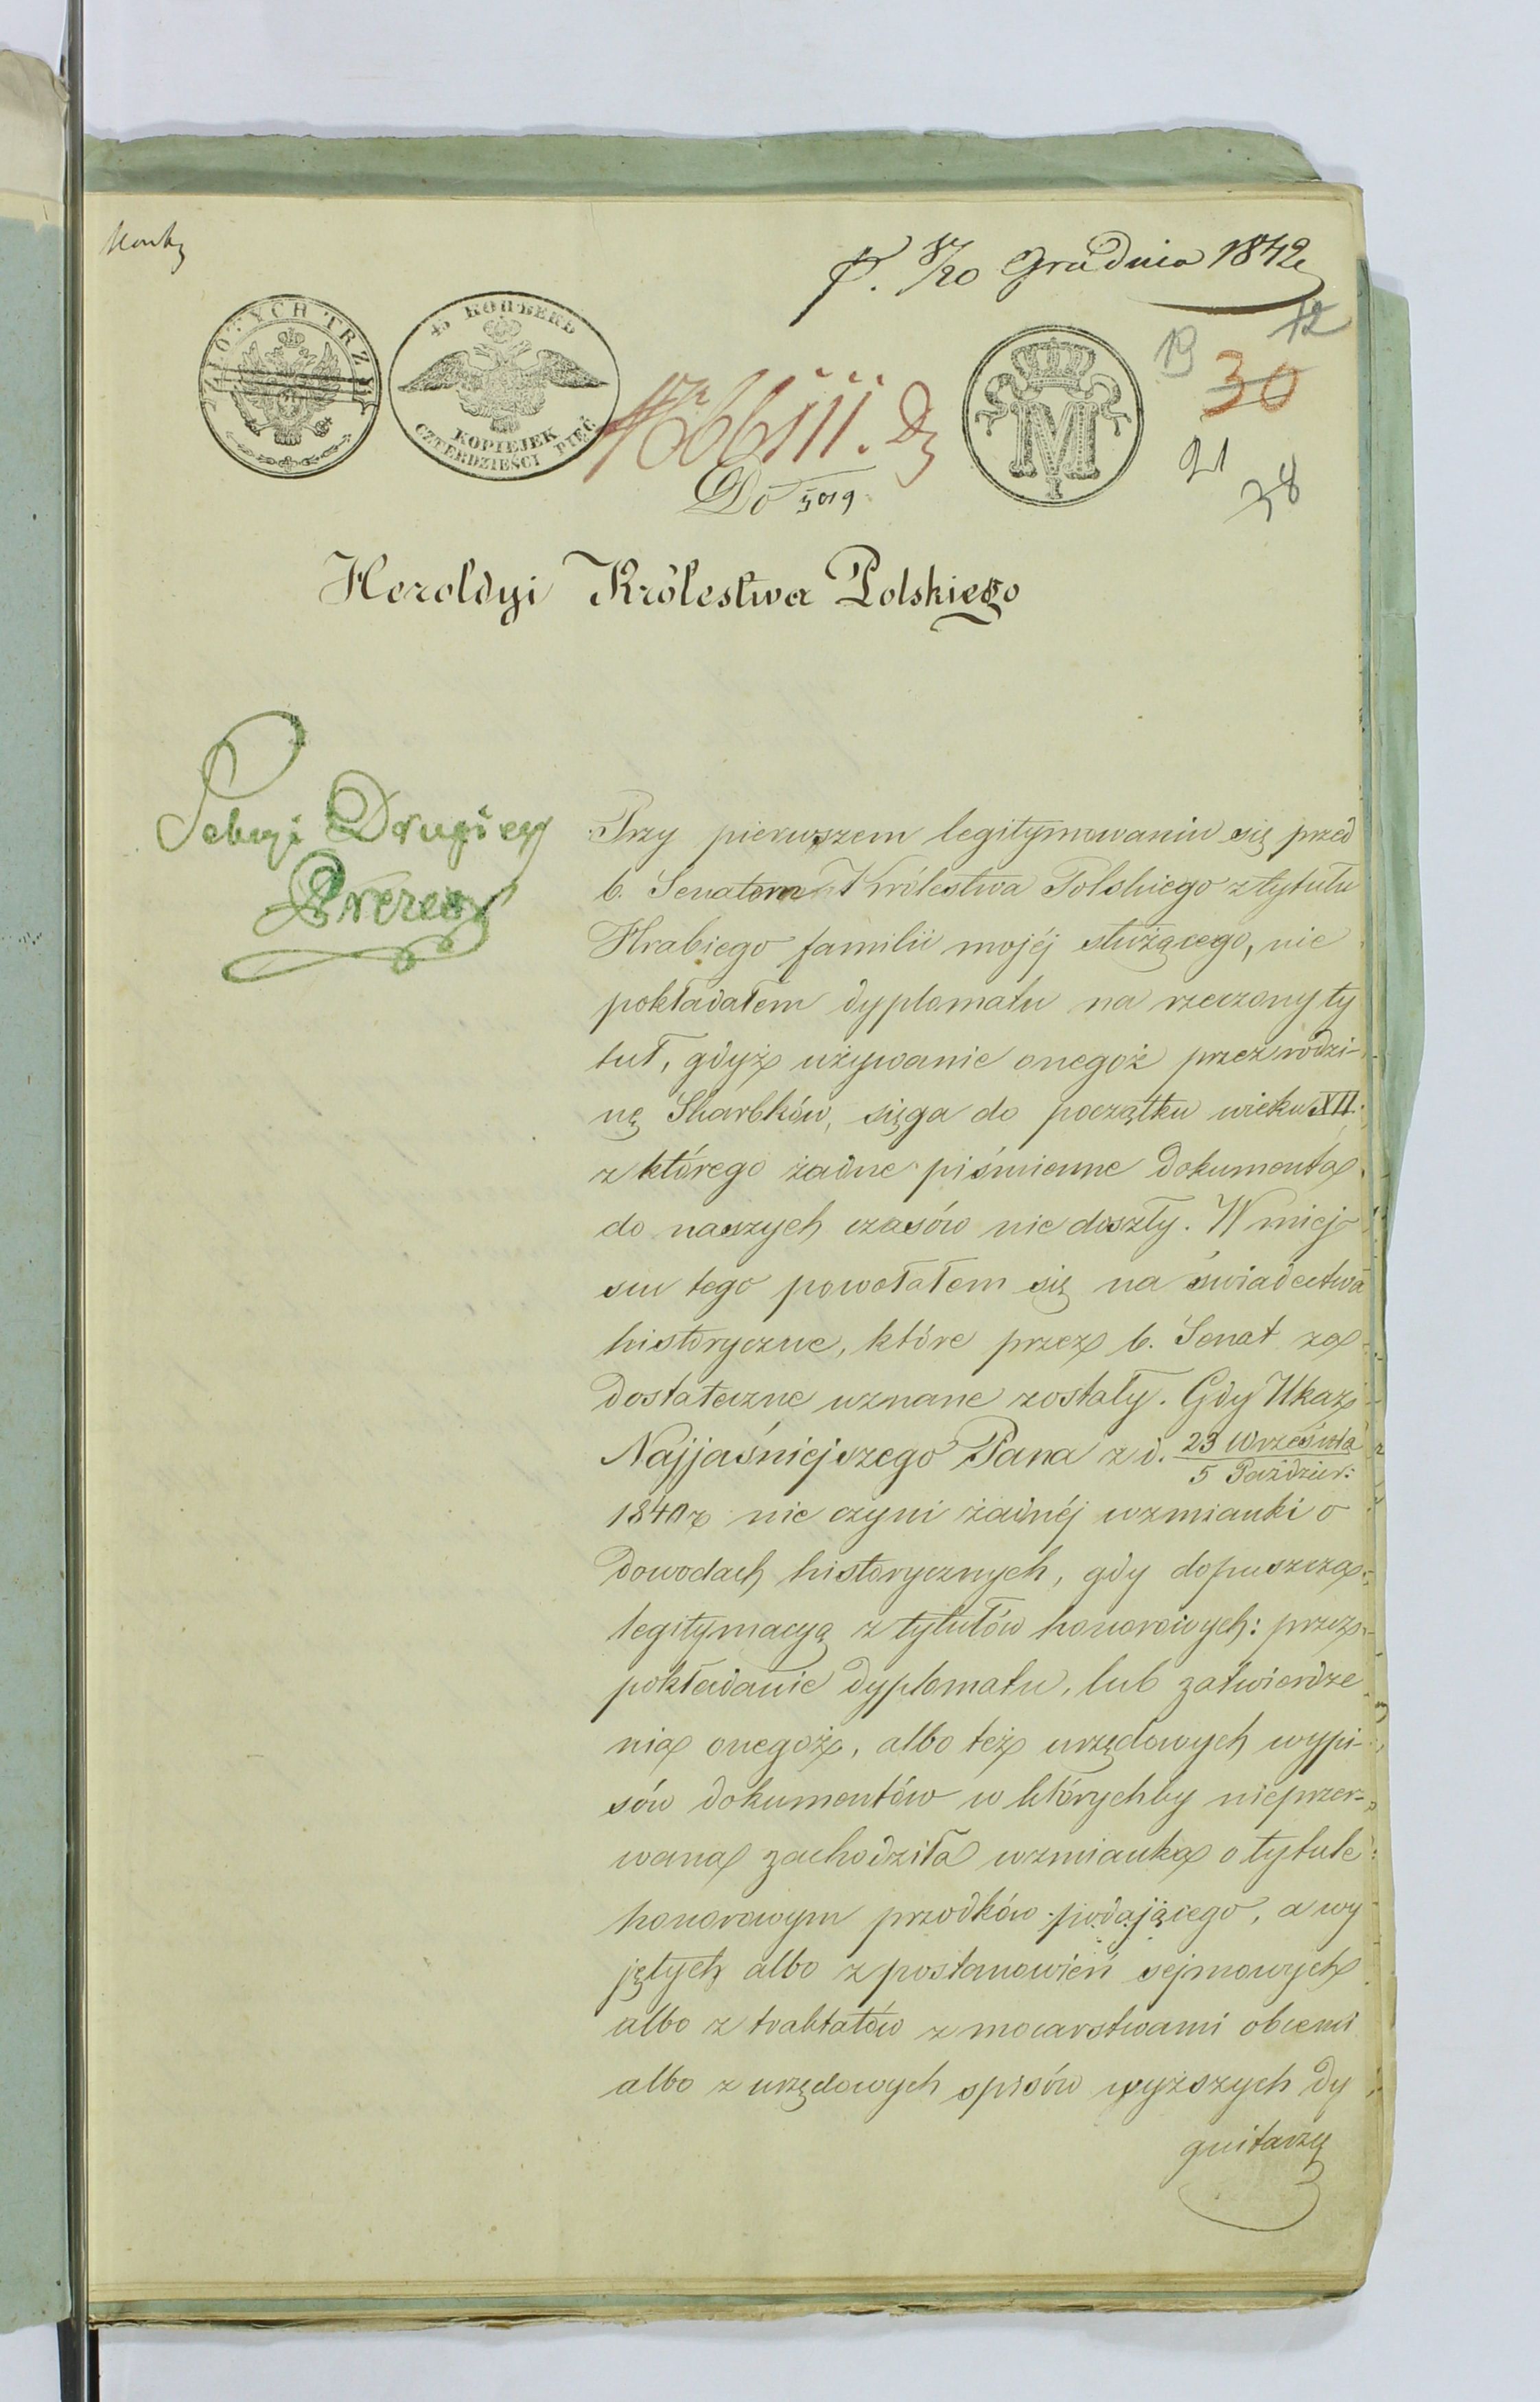 p. 8/20 Grudnia 1842
12
19
30
21
38
ZŁOTYCH TRZY
45 КОПѢЕКЪ
KOPIEJEK
CZTERDZIEŚCI PIĘĆ
M
I
Do
5019
Heroldyi Królestwa Polskiego
Sekcyi Drugiey
Przy pierwszem legitymowaniu się przed
b. Senatem Królestwa Polskiego z tytułu
Hrabiego familii mojéj służącego, nie
pokładałem dyplomatu na rzeczony ty
tuł, gdyż używanie onegoż przez rodzi-
nę Skarbków, sięga do początku wieku XII.
z którego żadne piśmienne dokumenta
do naszych czasów nie doszły. W miej-
scu tego powołałem się na świadectwa
historyczne, które przez b. Senat za
dostateczne uznane zostały. Gdy Ukaz
Najjaśniejszego Pana z d. 23 Września
5 Paździer:
1840 r nie czyni żadnéj wzmianki o
dowodach historycznych, gdy dopuszcza
legitymacyą z tytułów honorowych: przez
pokładanie dyplomatu, lub zatwierdze
nia onegoż, albo też urzędowych wypi-
sów dokumentów w którychby nieprzer-
wana zachodziła wzmianka o tytule
honorowym przodków podającego, a wy
jętych albo z postanowień sejmowych
albo z traktatów z mocarstwami obcemi
albo z urzędowych spisów wyższych dy
gnitarzy